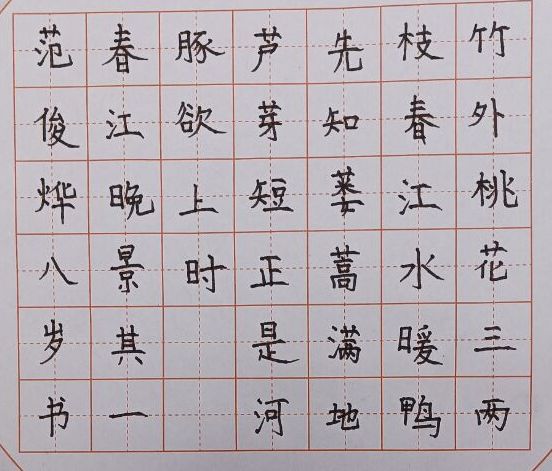 竹外桃花三两
枝春江水暖鸭
先知蒌蒿满地
芦芽短正是河
豚欲上时
春江晚景其一
范俊烨八岁书